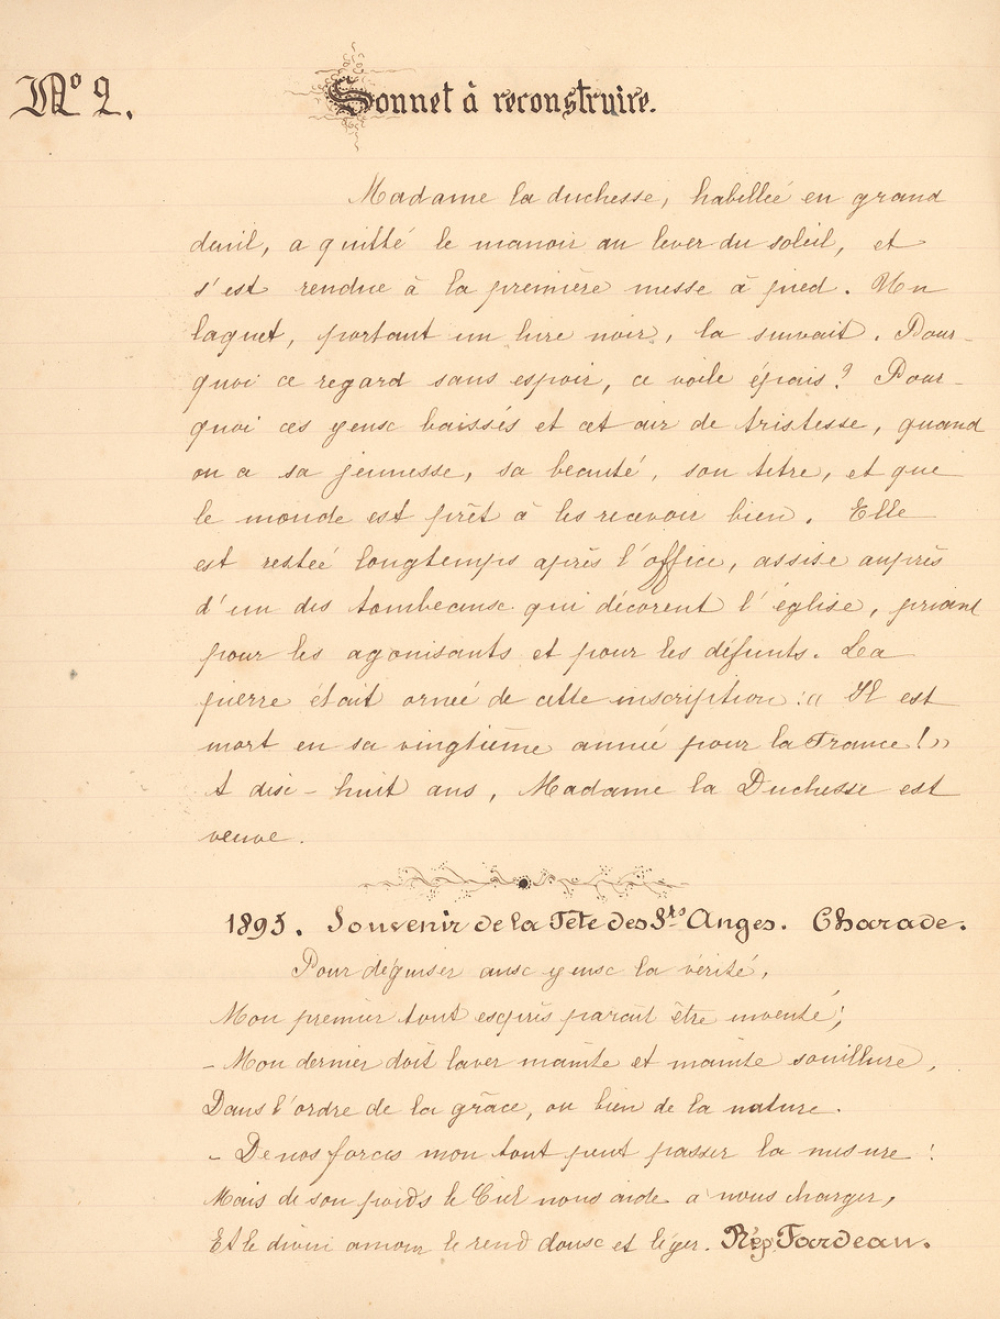 No 2.
Sonnet à reconstruire.
Madame la duchesse, habillée en grand
deuil, a quitté le manoir au lever du soleil, et
s'est rendue à la première messe à pied. Un
laquet, portant un livre noir, la suivait. Pour-
quoi ce regard sans espoir, ce voile épais? Pour-
quoi ces yeux baissés et cet air de tristesse, quand
on a sa jeunesse, sa beauté, son titre, et que
le monde est prêt à les recevoir bien. Elle
est restée longtemps après l'office, assise auprès
d'un des tombeaux qui décorent l'église, priant
pour les agonisants et pour les défunts. La
pierre était ornée de cette inscription: « Il est
mort en sa vingtième année pour la France! »
A dix-huit ans, Madame la Duchesse est
veuve.
1895. Souvenir de la Fête des Sts Anges. Charade.
Pour déguiser aux yeux la vérité,
Mon premier tout exprès paraît être inventé;
- Mon dernier doit laver mainte et mainte souillure,
Dans l'ordre de la grâce, ou bien de la nature.
- De nos forces mon tout peut passer la mesure:
Mais de son poids le Ciel nous aide à nous charger,
Et le divin amour le rend doux et léger. Rép. Fardeau.